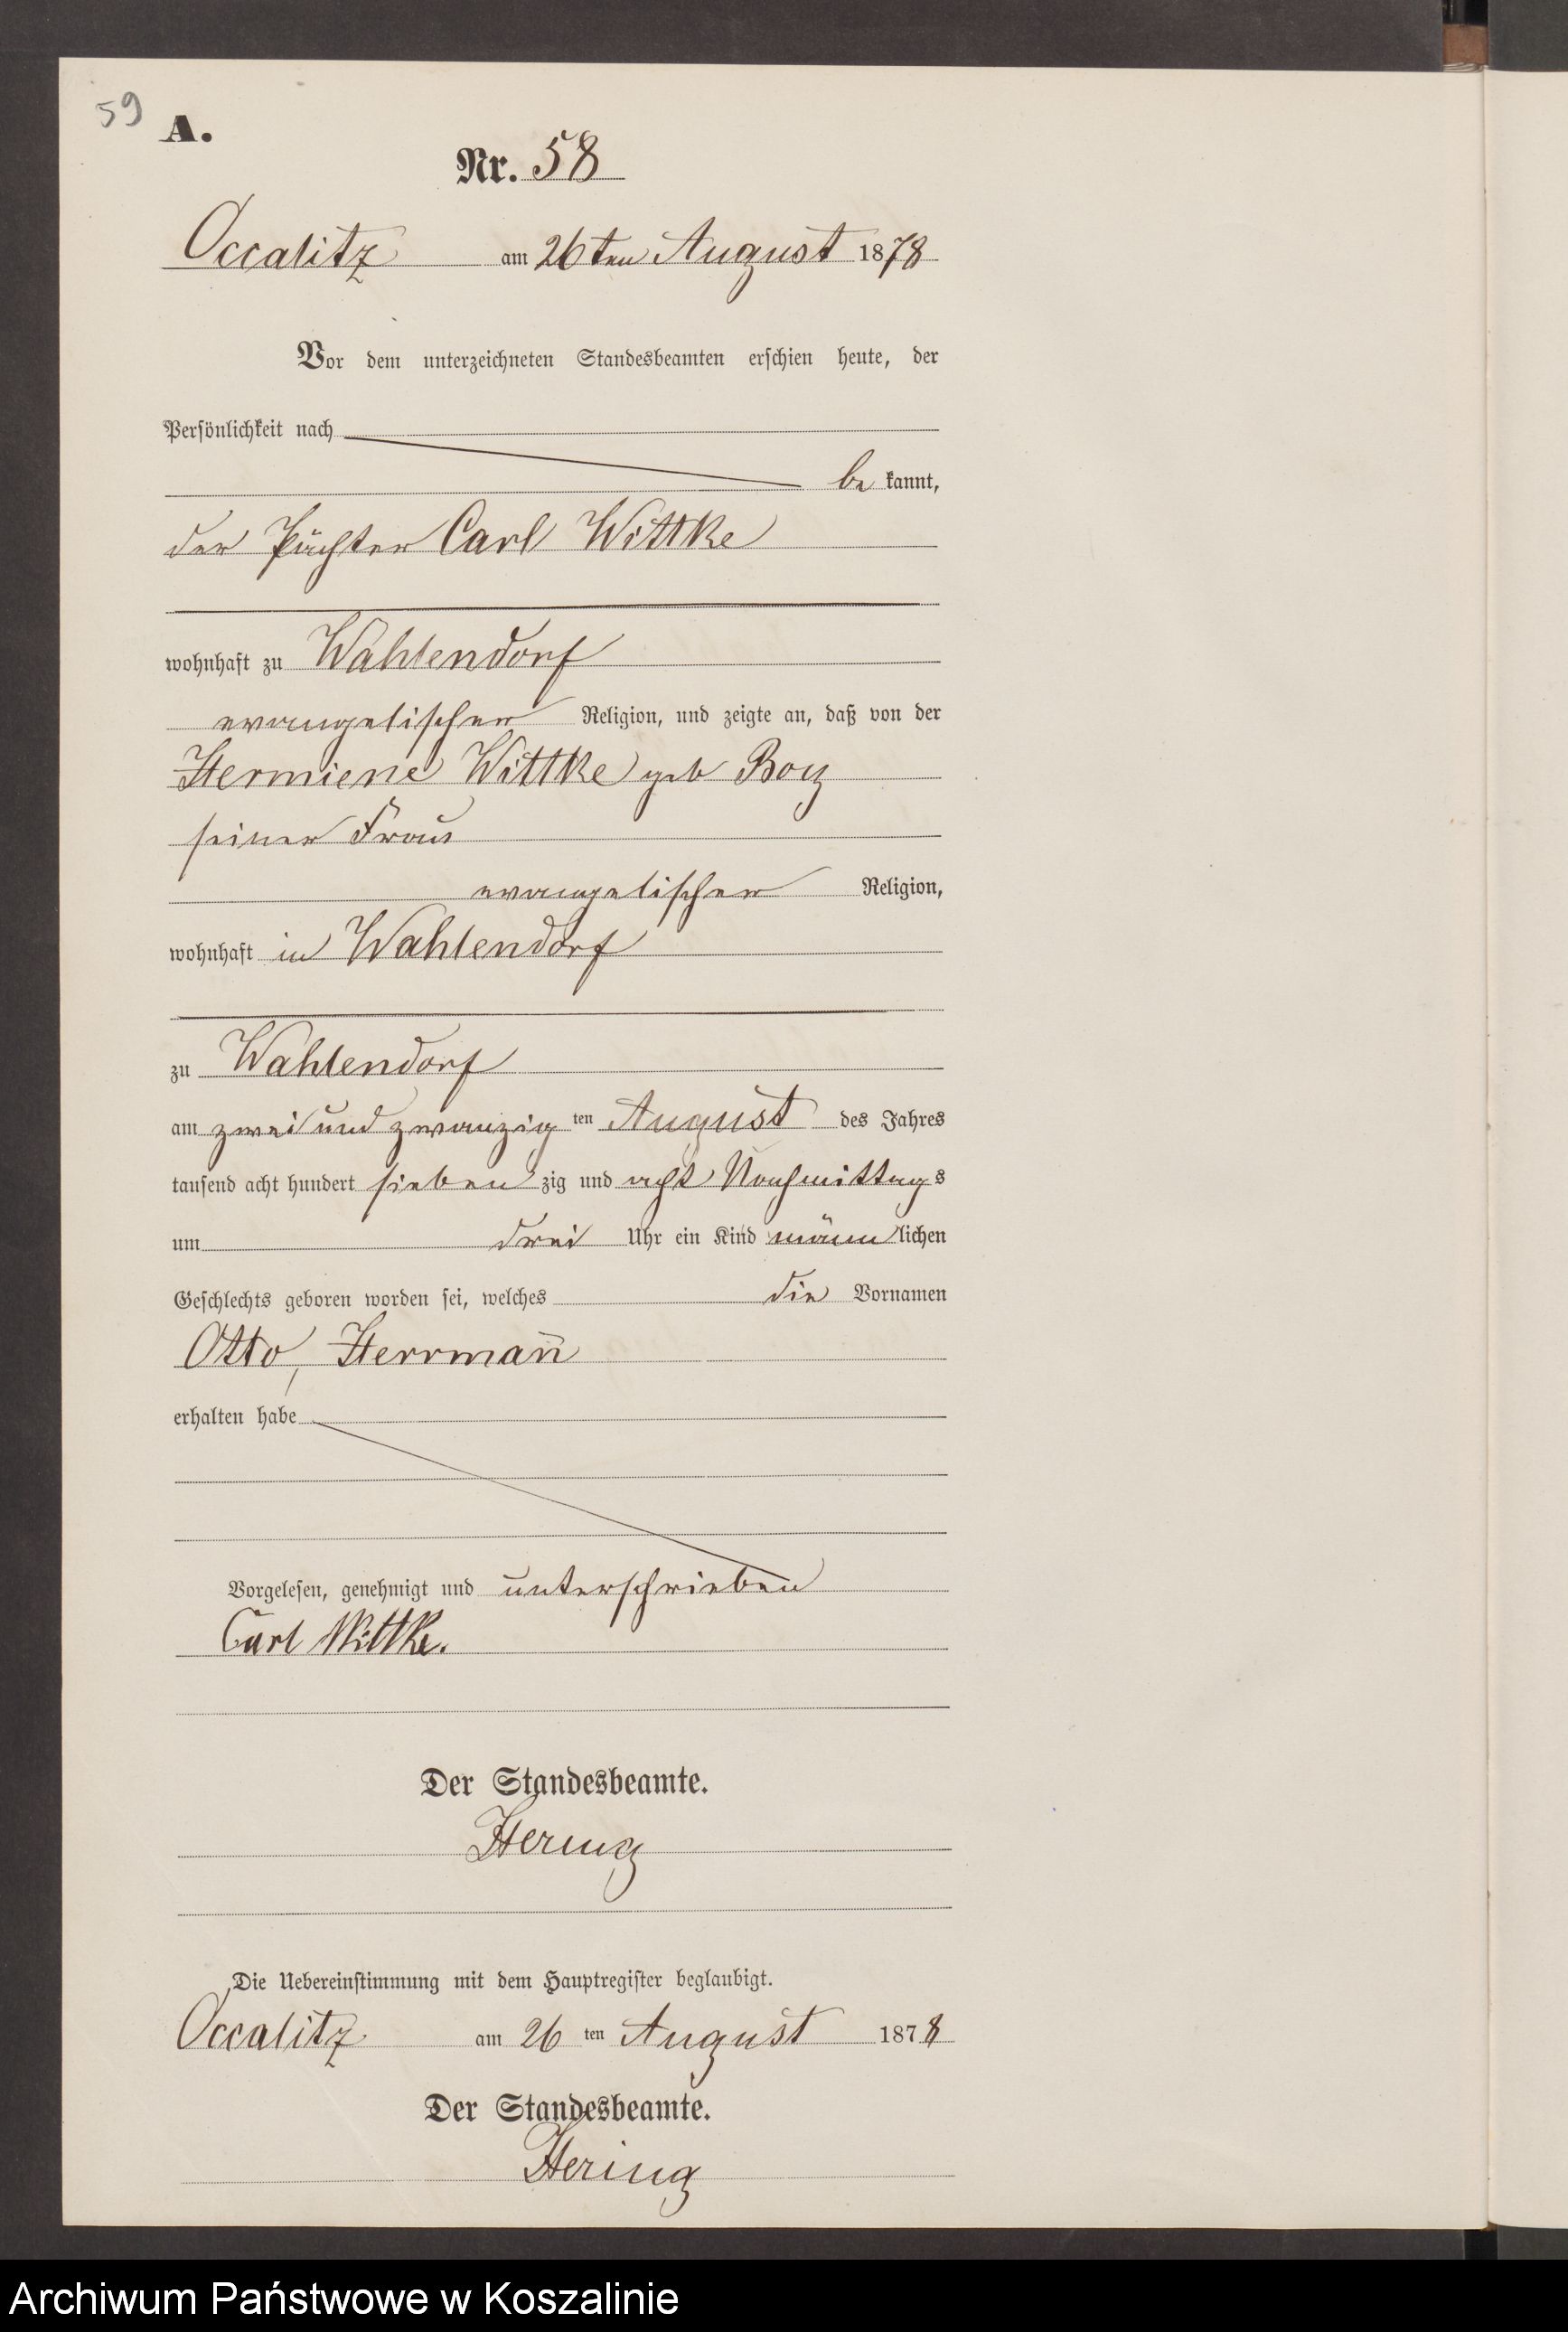 59
A.
Nr. 58
Occalitz am 26ten August 1878
Vor dem unterzeichneten Standesbeamten erschien heute, der
Persönlichkeit nach
be kannt,
der Pächter Carl Wittke
wohnhaft zu Wahlendorf
evangelischer Religion, und zeigte an, daß von der
Hermiene Wittke geb
seiner Frau
evangelischer Religion,
wohnhaft in Wahlendorf
zu Wahlendorf
am zwei und zwanzig ten August des Jahres
tausend acht hundert sieben zig und acht Nachmittags
um drei Uhr ein Kind männlichen
Geschlechts geboren worden sei, welches die Vornamen
Otto, Herrman̅
erhalten habe
Vorgelesen, genehmigt und unterschrieben
Carl Wittke.
Der Standesbeamte.
Hering
Die Uebereinstimmung mit dem Hauptregister beglaubigt.
Occalitz am 26 ten August 1878
Der Standesbeamte.
Hering
Archiwum Państwowe w Koszalinie